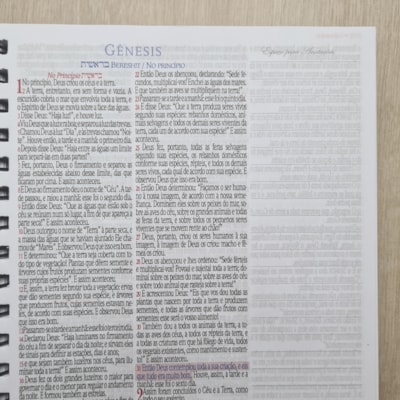 GÊNESIS
בראשית BERESHIT / NO PRINCÍPIO
No Princípio בראשית
1No princípio, Deus criou os céus e a terra.
2 A terra, entretanto, era sem forma e vazia. A
escuridão cobria o mar que envolvia toda a terra, e
o Espírito de Deus se movia sobre a face das águas.
3 Disse Deus: "Haja luz!", e houve luz.
4 Viu Deus que a luz era boa; e separou a luz das trevas.
5 Chamou Deus à luz "Dia", e às trevas chamou "Noi-
te". Houve então, a tarde e a manhã: o primeiro dia.
6 Depois disse Deus: "Haja entre as águas um limite
para separá-las em duas partes!"
7 Fez, portanto, Deus o firmamento e separou as
águas estabelecidas abaixo desse limite, das que
ficaram por cima. E assim aconteceu.
8 E Deus ao firmamento deu o nome de "Céu". A tar-
de passou, e raiou a manhã: esse foi o segundo dia.
9 Então disse Deus: "Que as águas que estão sob o
céu se reúnam num só lugar, a fim de que apareça a
parte seca!". E assim aconteceu.
10 Deus outorgou o nome de "Terra" à parte seca, e
a massa das águas que se haviam ajuntado Ele cha-
mou de "Mares". E observou Deus que isso era bom.
11 E determinou: "Que a terra seja coberta com to-
do tipo de vegetação: Plantas que dêem sementes e
árvores cujos frutos produzam sementes conforme
suas próprias espécies". E assim aconteceu.
12 E, assim, a terra fez brotar toda a vegetação: ervas
que dão sementes segundo sua espécie, e árvores
que produzem frutos, cujas sementes estavam ne-
les, de acordo com suas espécies. E observou Deus
que isso era bom.
13 Passaram-se a tarde e a manhã: esse foi o terceiro dia.
14 Declarou Deus: "Haja luminares no firmamento
do céu, a fim de separar o dia da noite; e sirvam eles
de sinais para definir as estações, dias e anos;
15 e que sejam também luzeiros nos céus, para ilu-
minar a terra!" E assim aconteceu.
16 Deus fez os dois grandes luminares: o maior para
governar o dia e o menor para regular o andamento
da noite. E formou também as estrelas.
22 Então Deus os abençoou, declarando: "Sede fe-
cundos, multiplicai-vos! Enchei as águas dos mares;
e que também as aves se multipliquem na terra!"
23 Passaram-se a tarde e a manhã: esse foi o quinto dia.
24 E disse Deus: "Que a terra produza seres vivos
segundo suas espécies: rebanhos domésticos, ani-
mais selvagens e todos os demais seres viventes da
terra, cada um de acordo com sua espécie!" E assim
aconteceu.
25 Deus fez, portanto, todas as feras selvagens
segundo suas espécies, os rebanhos domésticos
conforme suas espécies, répteis, e todos os demais
seres vivos, cada qual de acordo com sua espécie. E
observou Deus que isso era bom.
26 Então Deus determinou: "Façamos o ser huma-
no à nossa imagem, de acordo com a nossa seme-
lhança. Dominem eles sobre os peixes do mar, so-
bre as aves do céu, sobre os grandes animais e todas
as feras da terra, e sobre todos os pequenos seres
viventes que se movem rente ao chão!"
27 Deus, portanto, criou os seres humanos à sua
imagem, à imagem de Deus os criou: macho e fê-
mea os criou.
28 Deus os abençoou e lhes ordenou: "Sede férteis
e multiplicai-vos! Povoai e sujeitai toda a terra; do-
minai sobre os peixes do mar, sobre as aves do céu
e sobre todo animal que rasteja sobre a terra!"
29 E acrescentou Deus: "Eis que vos dou todas as
plantas que nascem por toda a terra e produzem
sementes, e todas as árvores que dão frutos com
sementes: esse será o vosso alimento!
30 Também dou a todos os animais da terra, a to-
das as aves dos céus, a todos os répteis, e a todas
as criaturas em que há fôlego de vida, todos
os vegetais existentes, como mantimento e susten-
to!" E assim aconteceu.
31 Então Deus contemplou toda a sua criação, e eis
que tudo era muito bom. Houve, assim, a tarde e a
manhã: esse foi o sexto dia.
2Assim foram concluídos o Céu e a Terra, como